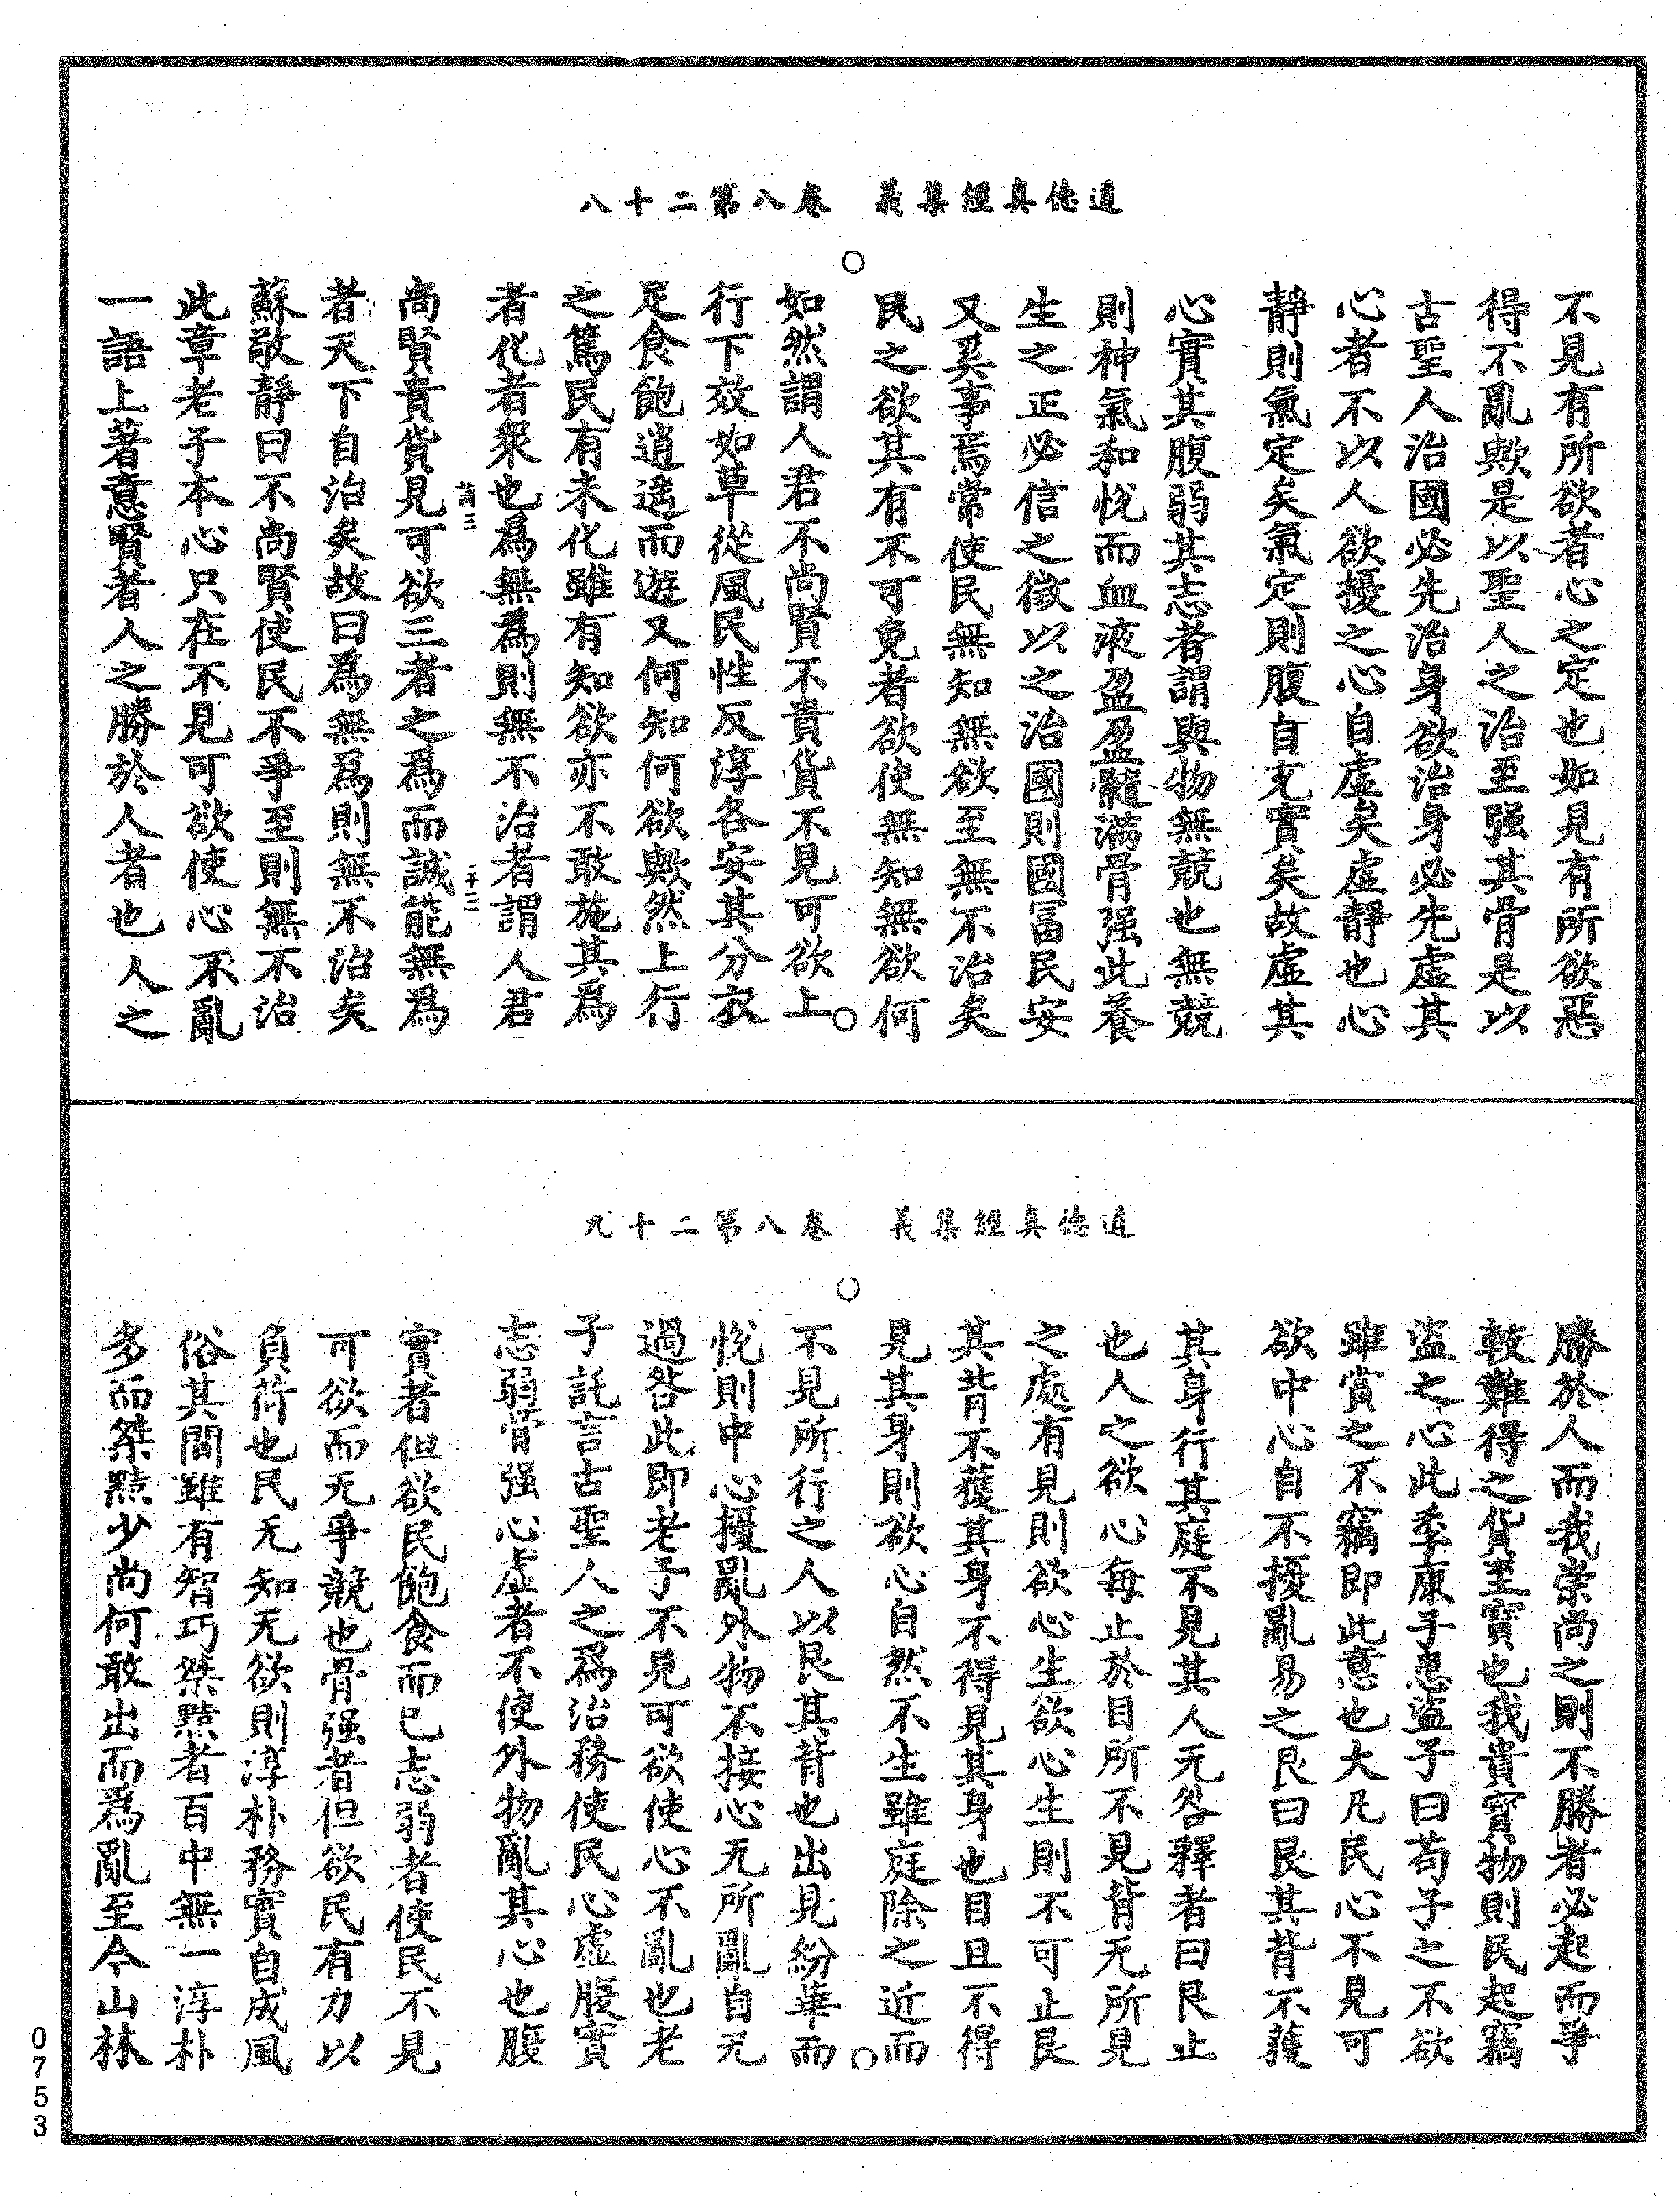 道德真經集義　卷八第二十八
不見有所欲者心之定也如見有所欲惡
得不亂歟是以聖人之治至强其骨是以
古聖人治國必先治身欲治身必先虛其
心者不以人欲擾之心自虛矣虛靜也心
靜則氣定矣氣定則腹自充實矣故虛其
心實其腹弱其志者謂與物無競也無競
則神氣和悅而血液盈盈髓滿骨强此養
生之正必信之徵以之治國則國冨民安
又奚事焉常使民無知無欲至無不治矣
民之欲其有不可免者欲使無知無欲何
如然謂人君不尚賢不貴貨不見可欲上
行下效如草從風民性反淳各安其分衣
足食飽逍遙而遊又何知何欲歟然上行
之篤民有未化雖有知欲亦不敢施其爲
者化者衆也爲無爲則無不治者謂人君
尚賢貴貨見可欲三者之爲而誠能無爲
者天下自治矣故曰爲無爲則無不治矣
蘇敬靜曰不尚賢使民不爭至則無不治
此章老子本心只在不見可欲使心不亂
一語上著意賢者人之勝於人者也人之
道德真經集義　卷八第二十九
勝於人而我崇尚之則不勝者必起而爭
較難得之貨至寶也我貴寶物則民起竊
盜之心此季康子患盜子曰苟子之不欲
雖賞之不竊即此意也大凡民心不見可
欲中心自不擾亂易之艮曰艮其背不獲
其身行其庭不見其人无咎釋者曰艮止
也人之欲心每止於目所不見背无所見
之處有見則欲心生欲心生則不可止艮
其背不獲其身不得見其身也目且不得
見其身則欲心自然不生雖庭除之近而
不見所行之人以艮其背也出見紛華而
悅則中心擾亂外物不接心无所亂自无
過咎此即老子不見可欲使心不亂也老
子託言古聖人之爲治務使民心虛腹實
志弱骨强心虛者不使外物亂其心也腹
實者但欲民飽食而已志弱者使民不見
可欲而无爭競也骨强者但欲民有力以
負荷也民无知无欲則淳朴務實自成風
俗其間雖有智巧桀黠者百中無一淳朴
多而桀黠少尚何敢出而爲亂至今山林
0753